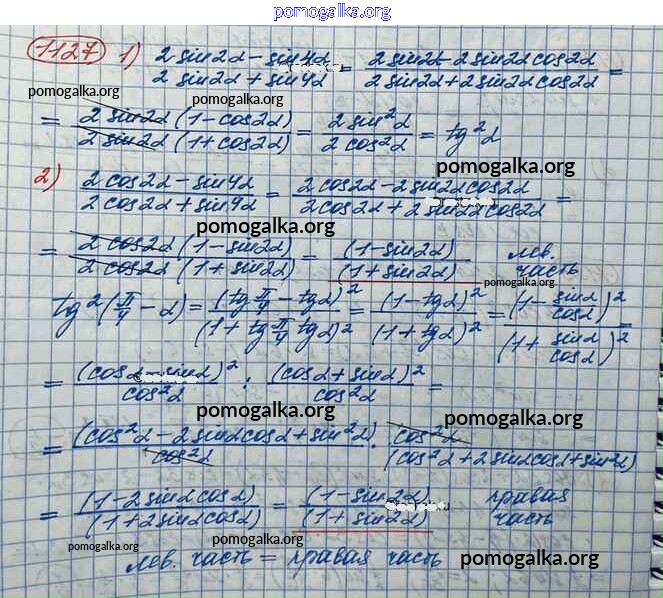 pomogalka.org
1127 1) (2 sin2α - sin4α)/(2 sin2α + sin4α) = (2 sin2α - 2 sin2α cos2α)/(2 sin2α + 2 sin2α cos2α) =
pomogalka.org pomogalka.org
= (2 sin2α (1 - cos2α))/(2 sin2α (1 + cos2α)) = (2 sin²α)/(2 cos²α) = tg²α
pomogalka.org
2) (2 cos2α - sin4α)/(2 cos2α + sin4α) = (2 cos2α - 2 sin2α cos2α)/(2 cos2α + 2 sin2α cos2α) =
pomogalka.org
= (2 cos2α (1 - sin2α))/(2 cos2α (1 + sin2α)) = (1 - sin2α)/(1 + sin2α) лев. часть
pomogalka.org
tg²(π/4 - α) = (tg π/4 - tgα)²/(1 + tg π/4 tgα)² = (1 - tgα)²/(1 + tgα)² = (1 - sinα/cosα)²/(1 + sinα/cosα)² =
= (cosα - sinα)²/cos²α : (cosα + sinα)²/cos²α =
pomogalka.org pomogalka.org
= (cos²α - 2 sinα cosα + sin²α)/cos²α · cos²α/(cos²α + 2 sinα cosα + sin²α)
pomogalka.org
= (1 - 2 sinα cosα)/(1 + 2 sinα cosα) = (1 - sin2α)/(1 + sin2α) правая часть
pomogalka.org pomogalka.org
лев. часть = правая часть pomogalka.org